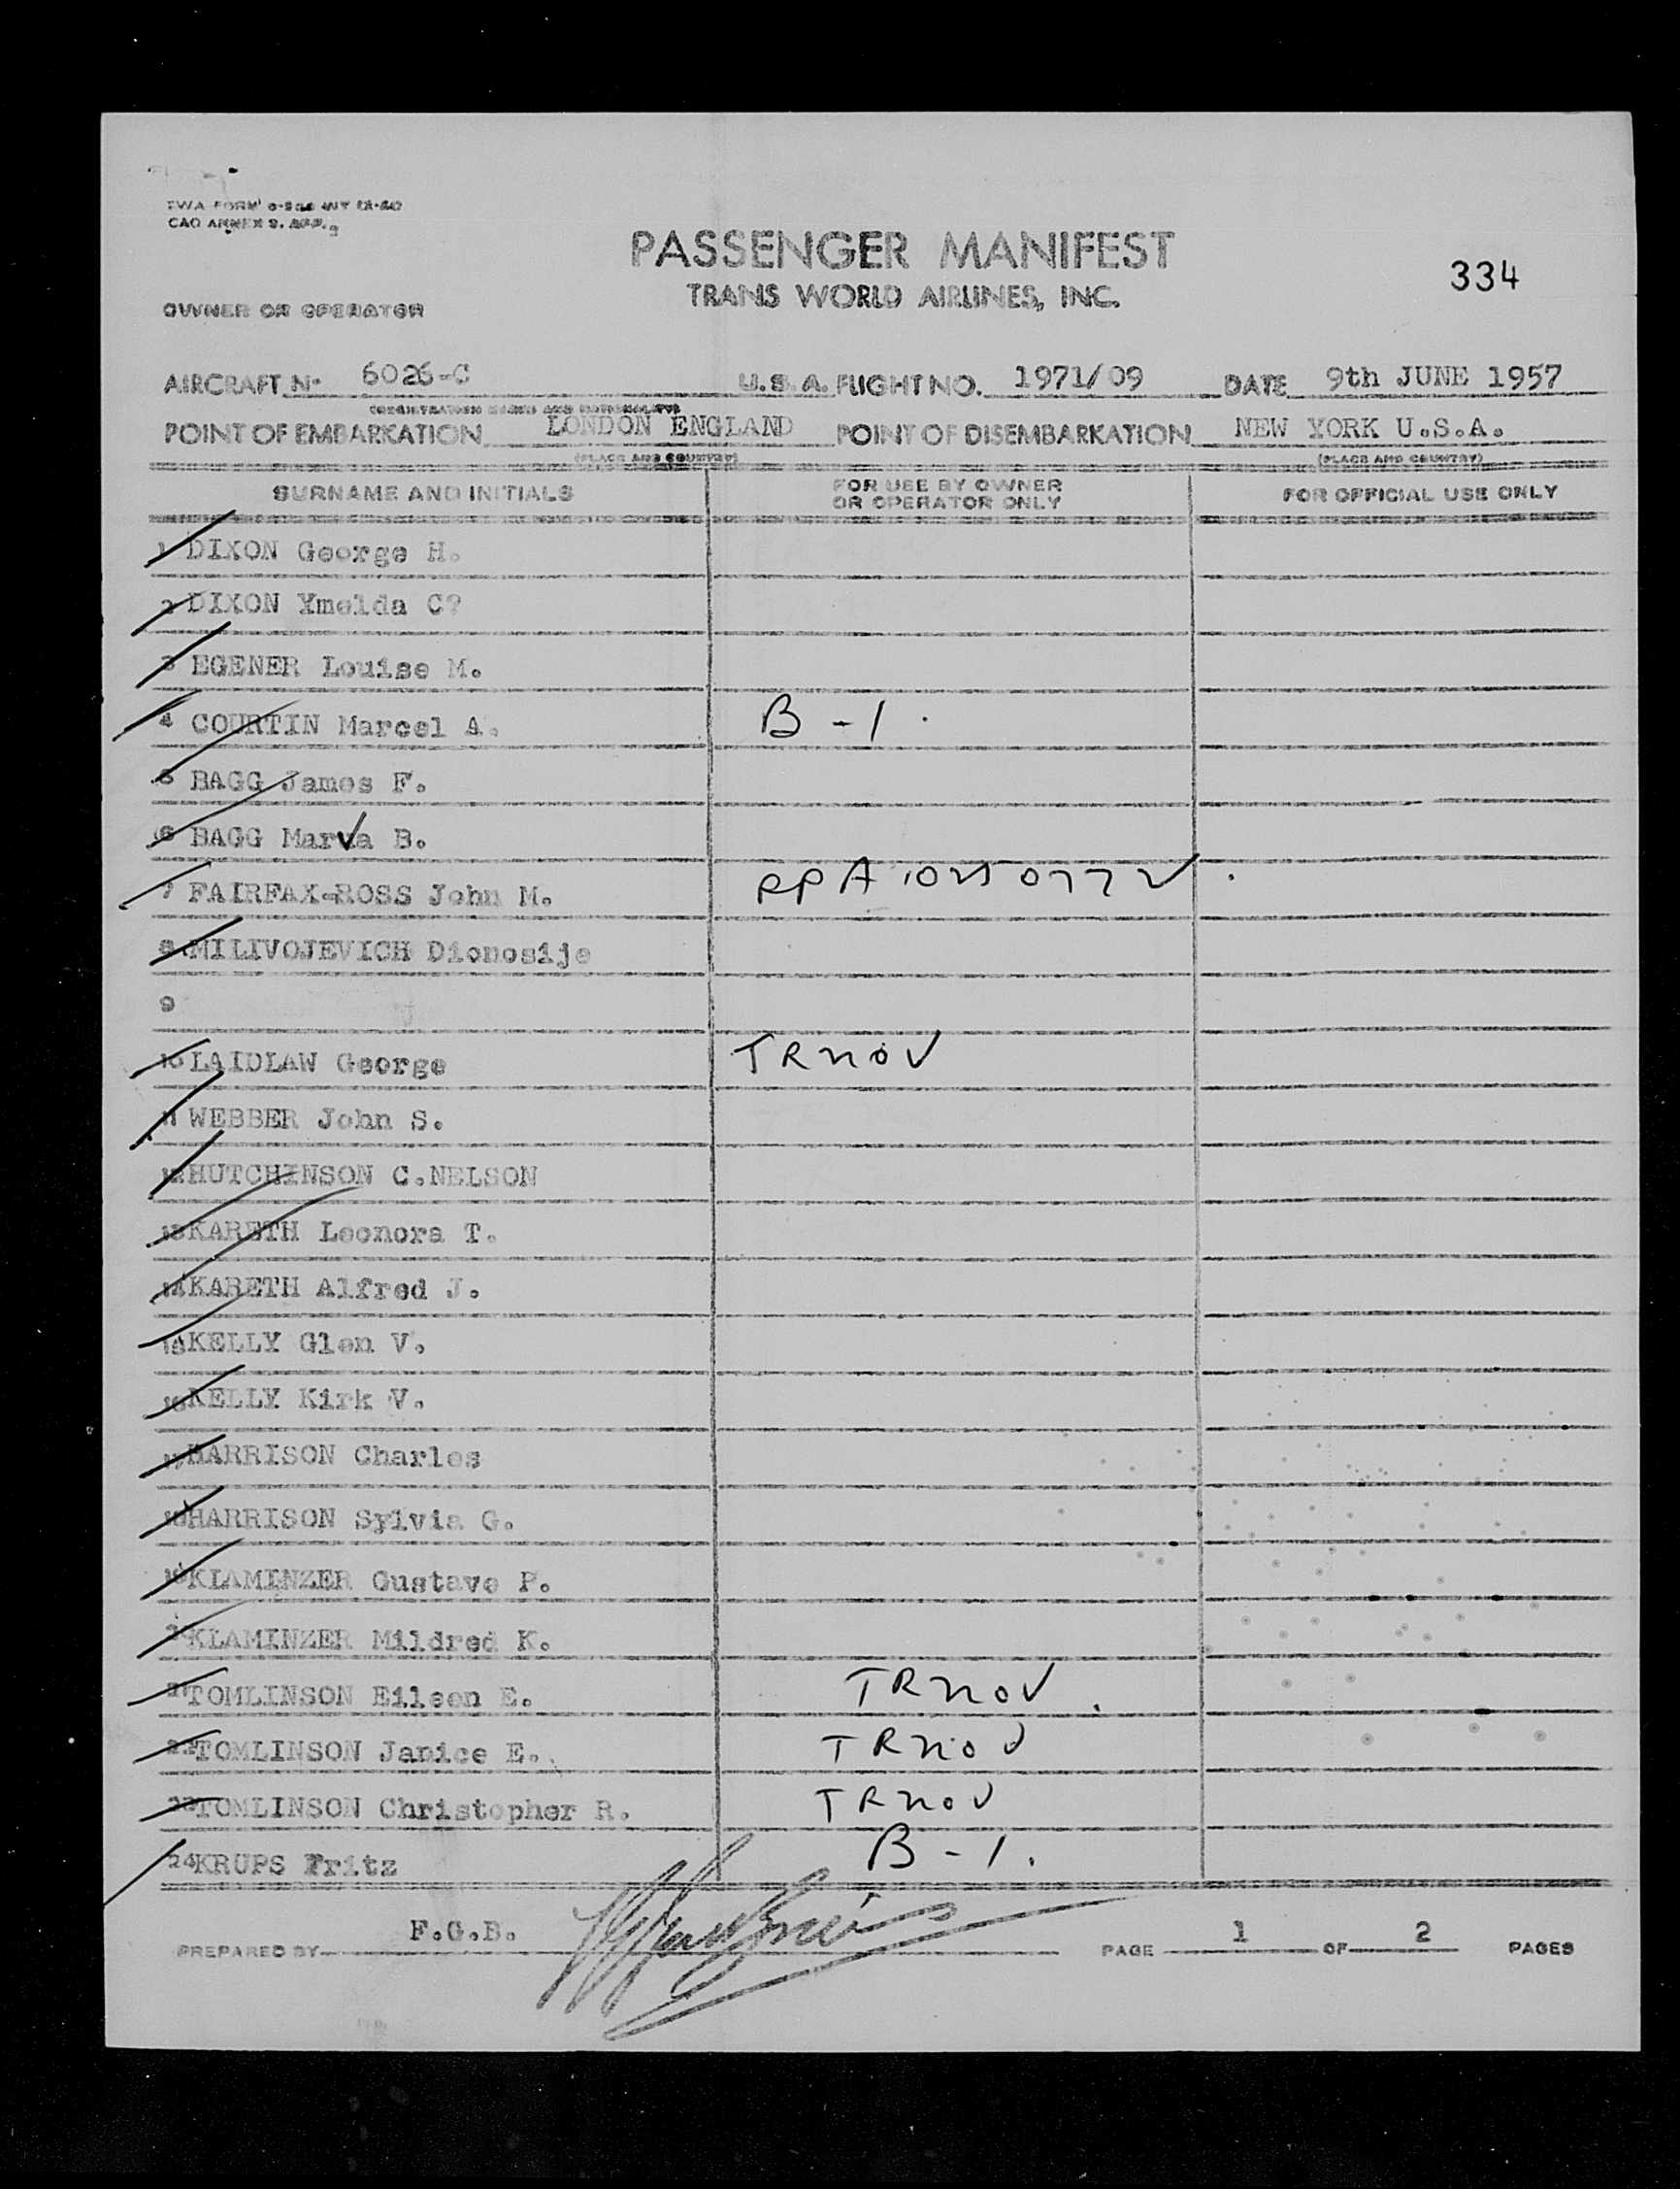 TWA FORM
CAO ANNEX 9. APP.
PASSENGER MANIFEST
TRANS WORLD AIRLINES, INC.
334
OWNER OR OPERATOR
AIRCRAFT No 6026-C U.S.A. FLIGHT NO. 1971/09 DATE 9th JUNE 1957
(REGISTRATION MARKS AND NATIONALITY)
POINT OF EMBARKATION LONDON ENGLAND POINT OF DISEMBARKATION NEW YORK U.S.A.
(PLACE AND COUNTRY) (PLACE AND COUNTRY)
SURNAME AND INITIALS FOR USE BY OWNER OR OPERATOR ONLY FOR OFFICIAL USE ONLY
1 DIXON George H.
2 DIXON Ymelda C?
3 EGENER Louise M.
4 COURTIN Marcel A. B-1.
5 BAGG James F.
6 BAGG Marva B.
7 FAIRFAX-ROSS John M. PPA
8 MILIVOJEVICH Dionosije
9
10 LAIDLAW George TRNOV
11 WEBBER John S.
12 HUTCHINSON C.NELSON
13 KARETH Leonora T.
14 KARETH Alfred J.
15 KELLY Glen V.
16 KELLY Kirk V.
17 HARRISON Charles
18 HARRISON Sylvia G.
19 KLAMINZER Gustave P.
20 KLAMINZER Mildred K.
21 TOMLINSON Eileen E. TRNOV.
22 TOMLINSON Janice E. TRNOV
23 TOMLINSON Christopher R. TRNOV
24 KRUPS Fritz B-1.
PREPARED BY F.G.B. PAGE 1 OF 2 PAGES